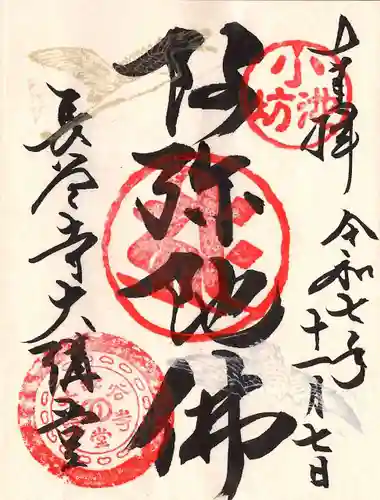 奉拝
令和七年
十一月七日
阿弥陀佛
長谷寺大講堂
小池坊